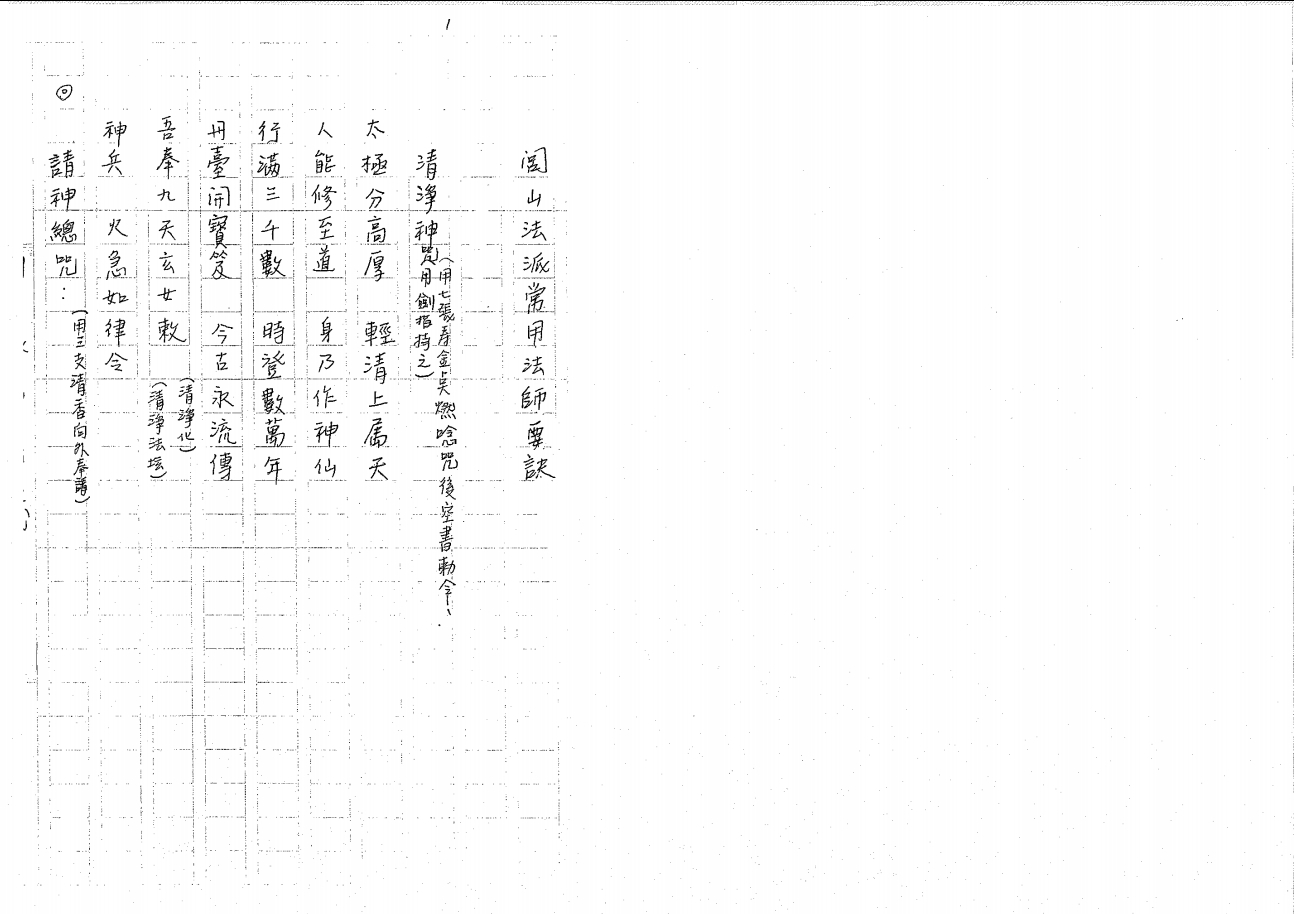 1
閭山法派常用法師要訣
清淨神咒(用七張壽金点燃唸咒後空書勅令、
用劍指持之)
太極分高厚　輕清上属天
人能修至道　身乃作神仙
行滿三千數　時登數萬年
丹臺開寶笈　今古永流傳
吾奉九天玄女敕　(清淨化)
(清淨法坛)
神兵　火急如律令
◎ 請神總咒：(用三支清香向外奉請)